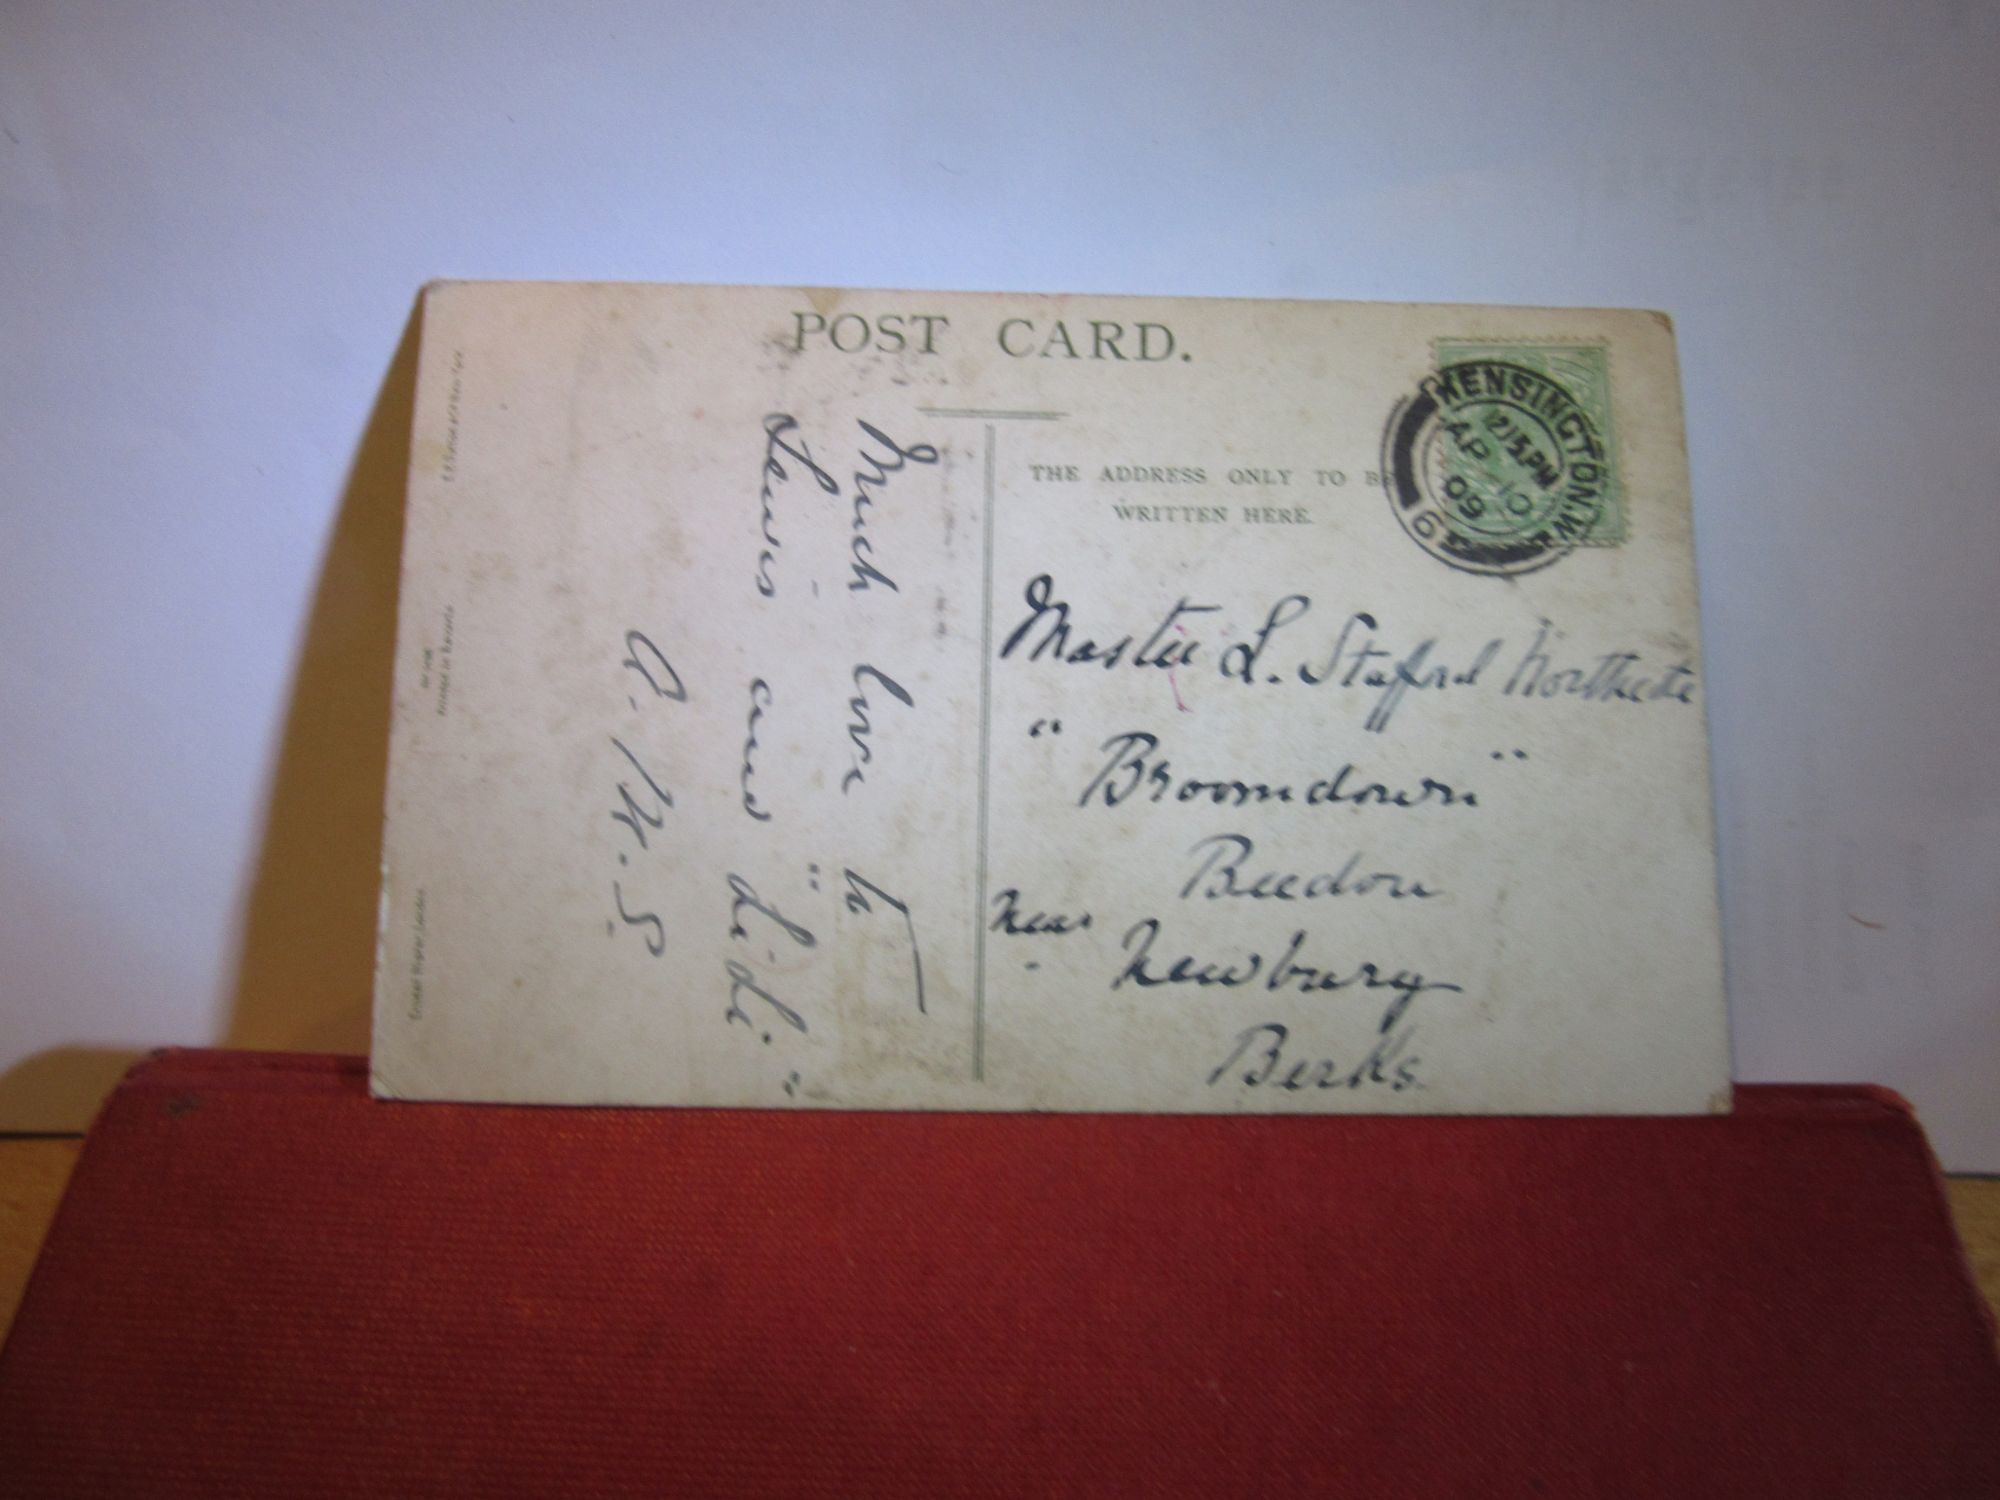 POST CARD.
THE ADDRESS ONLY TO BE
WRITTEN HERE.
KENSINGTON.W
12.15PM
AP 10
09
6
Much love to
Lewis and "Lidi"
Master L. Stafford Northcote
"Broomdown"
Beedon
Near Newbury
Berks.
Printed in Bavaria